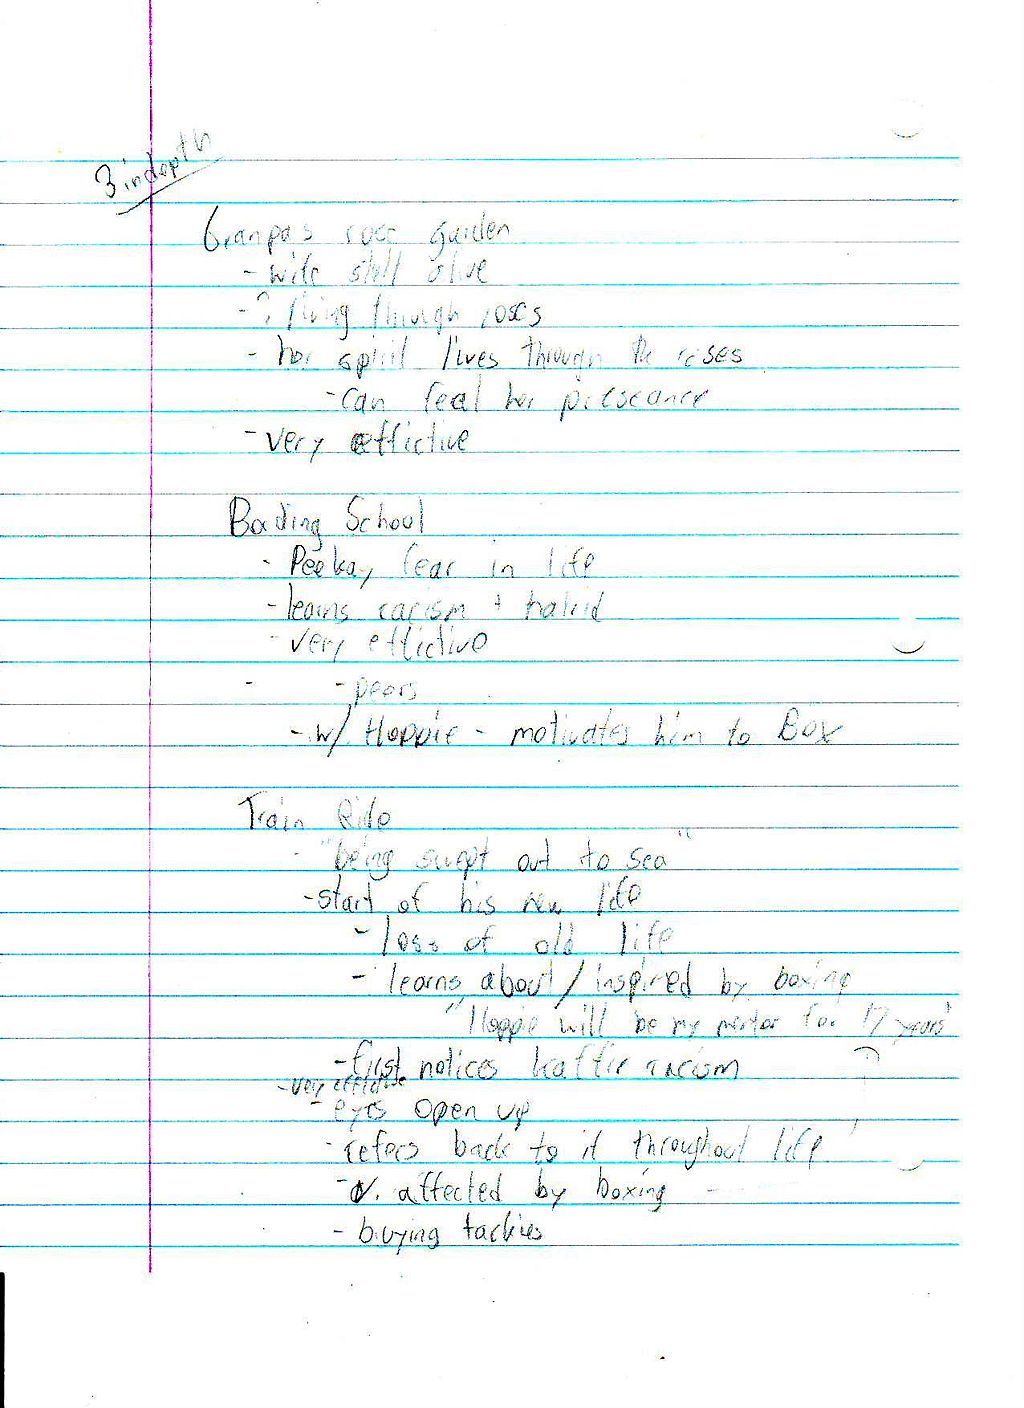 3 indepth
Granpa's rose garden
- wife still alive
- ? living through roses
- her spirit lives through the roses
- can feel her preseance
- very effictive
Boading School
- Peekay fear in life
- learns racism + hatrid
- very effictive
- - peers
- w/ Hoppie - motivates him to Box
Train Ride
- "being swept out to sea"
- start of his new life
- loss of old life
- learns about / inspired by boxing
"Hoppie will be my mentor for 17 years"
- first notices kaffir racism
- very effictive
- eyes open up
- refers back to it throughout life
- v. affected by boxing
- buying tackies